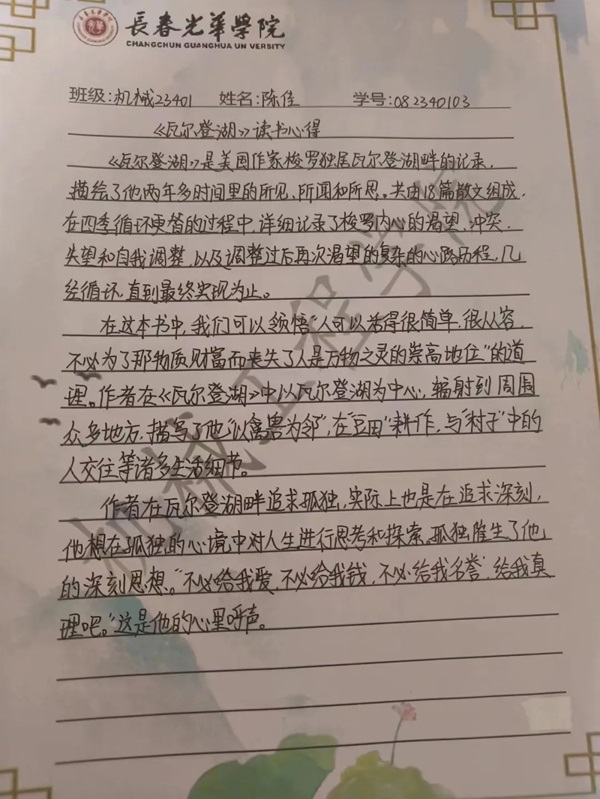 長春光華學院
CHANGCHUN GUANGHUA UNIVERSITY
班级:机械23401 姓名:陈佳 学号:082340103
《瓦尔登湖》读书心得
《瓦尔登湖》是美国作家梭罗独居瓦尔登湖畔的记录,
描绘了他两年多时间里的所见、所闻和所思。共由18篇散文组成,
在四季循环更替的过程中,详细记录了梭罗内心的渴望、冲突、
失望和自我调整,以及调整过后再次渴望的复杂的心路历程,几
经循环,直到最终实现为止。
在这本书中,我们可以领悟"人可以活得很简单,很从容,
不必为了那物质财富而丧失了人是万物之灵的崇高地位"的道
理。作者在《瓦尔登湖》中以瓦尔登湖为中心,辐射到周围
众多地方,描写了他"以禽兽为邻",在"豆田"耕作,与"村子"中的
人交往等诸多生活细节。
作者在瓦尔登湖畔追求孤独,实际上也是在追求深刻,
他想在孤独的心境中对人生进行思考和探索,孤独催生了他
的深刻思想。"不必给我爱,不必给我钱,不必给我名誉,给我真
理吧。"这是他的心里呼声。
机械工程学院